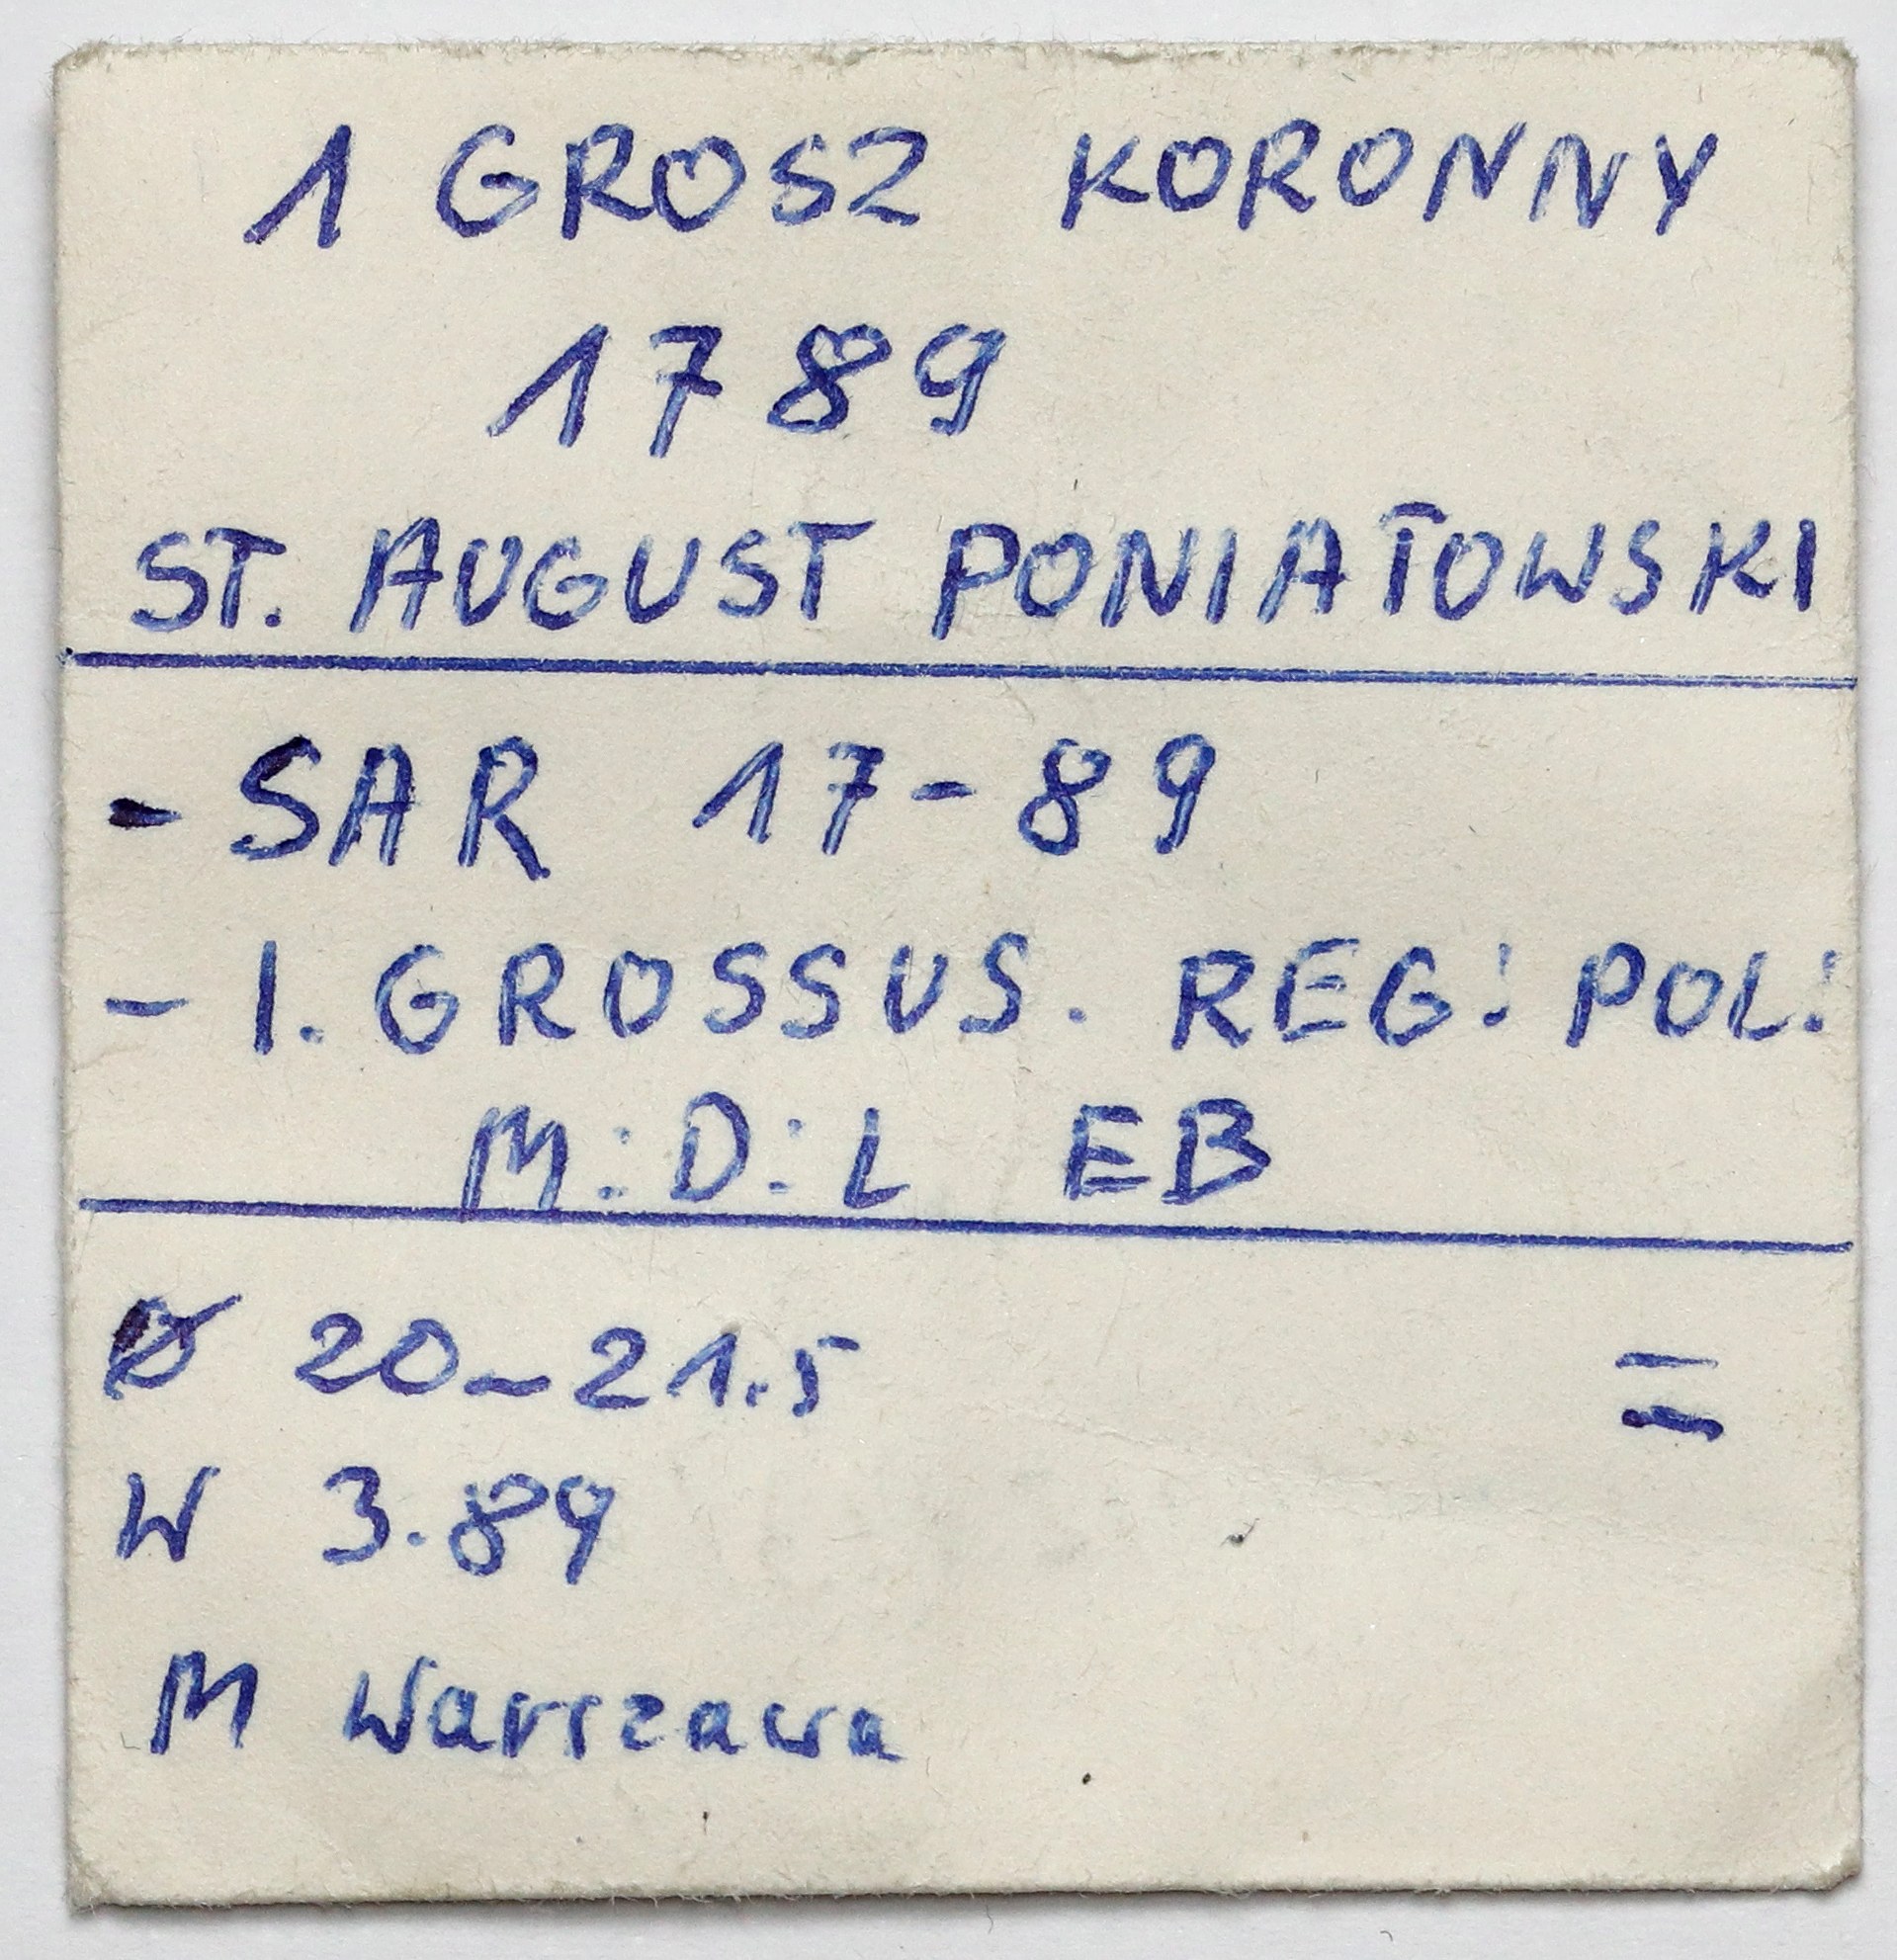 1 GROSZ KORONNY
1789
ST. AUGUST PONIATOWSKI
- SAR 17-89
- I. GROSSUS. REG: POL:
M:D:L EB
Ø 20-21.5 =
W 3.89
M Warszawa